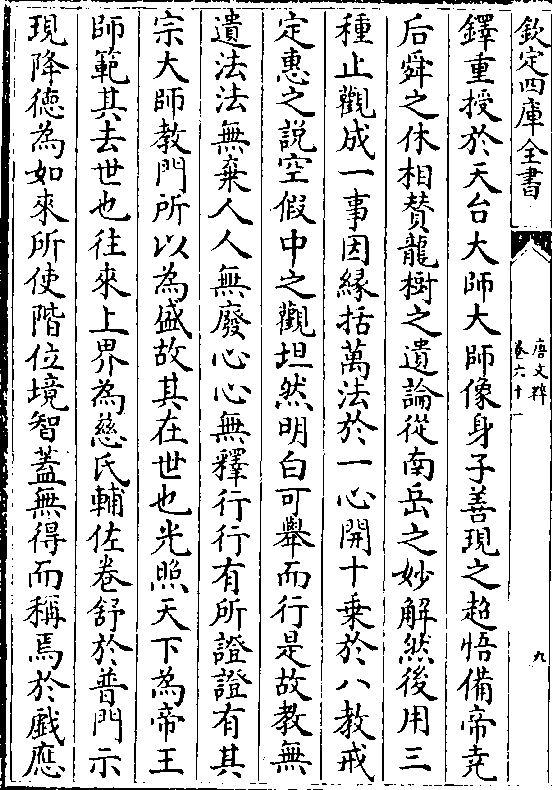 欽定四庫全書
唐文粹
卷六十一
九
鐸重授於天台大師大師像身子善現之超悟備帝堯
后舜之休相賛龍樹之遺論從南岳之妙解然後用三
種止觀成一事因緣括萬法於一心開十乗於八教戒
定惠之説空假中之觀坦然明白可舉而行是故教無
遺法法無棄人人無廢心心無釋行行有所證證有其
宗大師教門所以為盛故其在世也光照天下為帝王
師範其去世也往來上界為慈氏輔佐卷舒於普門示
現降德為如來所使階位境智蓋無得而稱焉於戲應